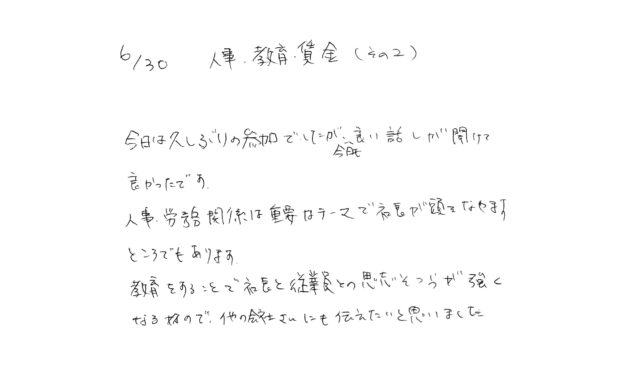 6/30 人事・教育・賃金（その2）
今日は久しぶりの参加でしたが、今回も良い話しが聞けて
良かったです。
人事・労務関係は重要なテーマで社長が頭をなやます
ところでもあります。
教育をすることで社長と従業員との意思そつうが強く
なるので、他の会社さんにも伝えたいと思いました